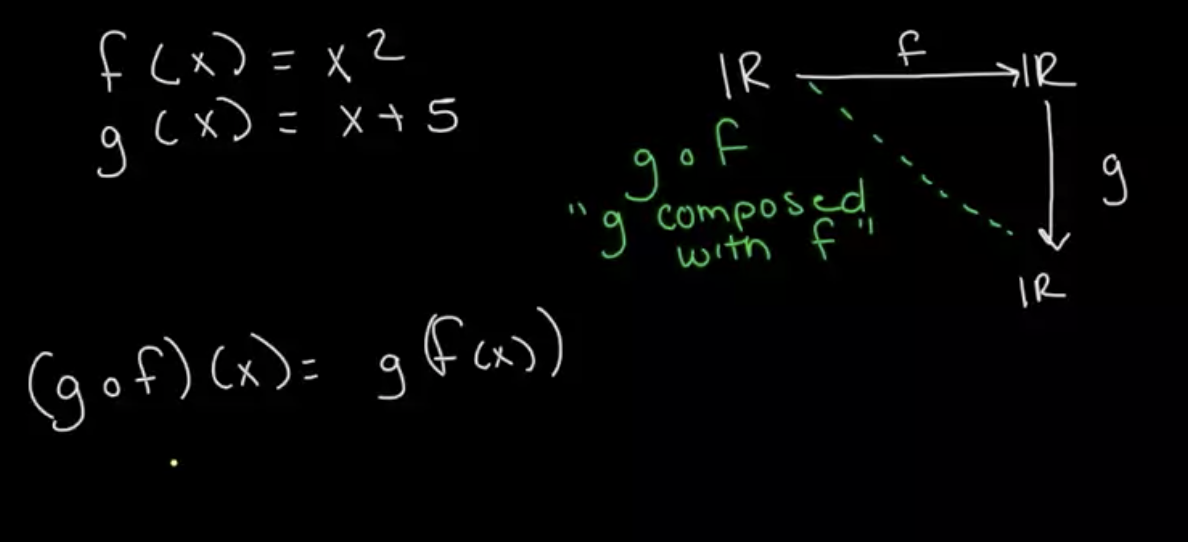 f(x) = x²
g(x) = x+5
ℝ f ℝ
g
ℝ
g∘f
"g composed
with f"
(g∘f)(x) = g(f(x))